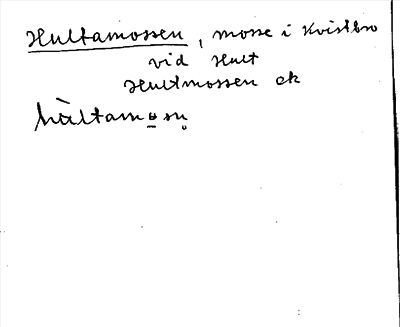 Hultamossen, mosse i Kvistbro
vid Hult
Hultmossen ek
hùltamo̲sn̥